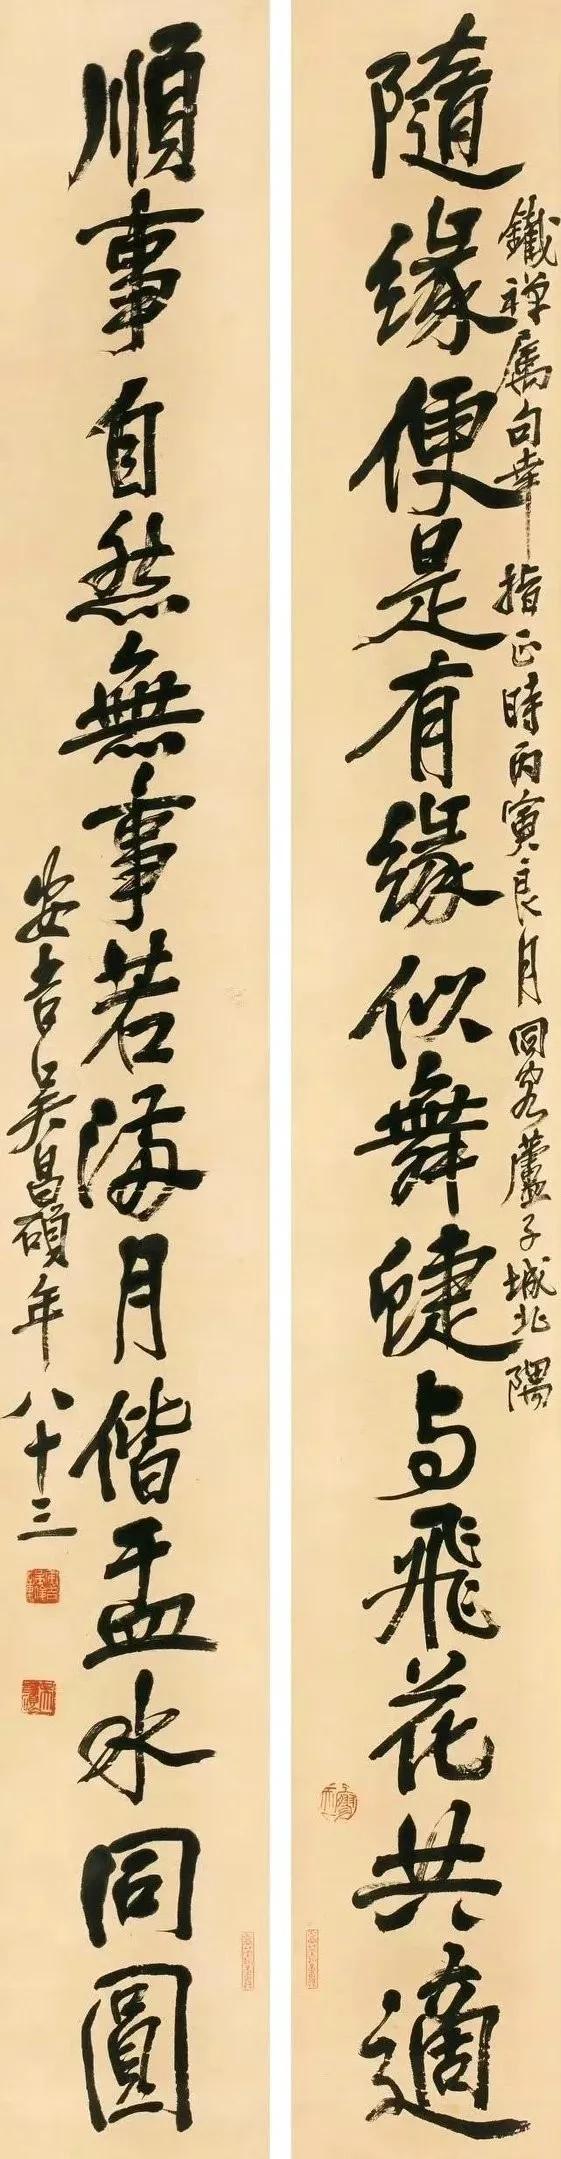 鐵禪属句幸
指正時丙寅良月同客蘆子城北隅
隨缘便是有缘似舞蜨与飛花共適
順事自然無事若满月偕盂水同圓
安吉吴昌碩年八十三